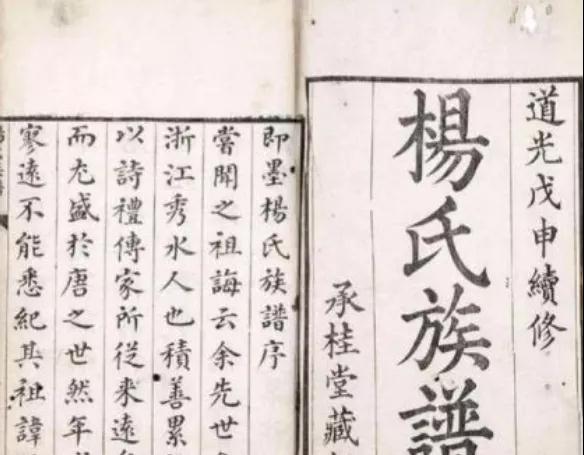 道光戊申續修
楊氏族譜
承桂堂藏
即墨楊氏族譜序
嘗聞之祖誨云余先世
浙江秀水人也積善累
以詩禮傳家所從來遠
而尤盛於唐之世然年
寥遠不能悉紀其祖諱